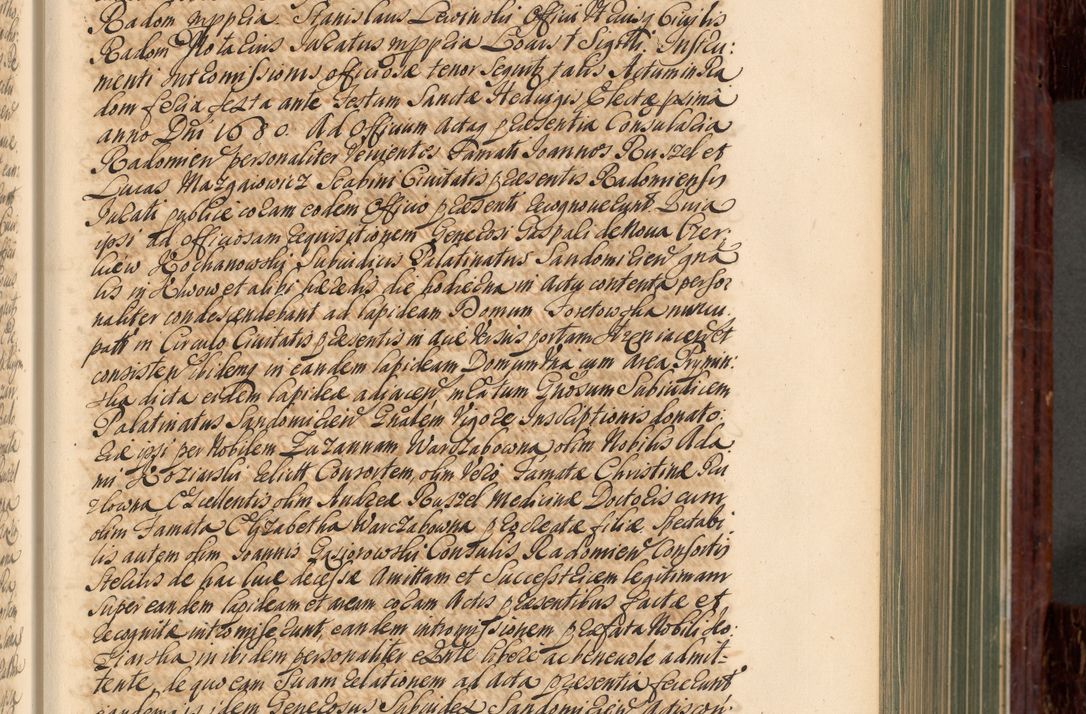 Radom mppria Stanislaus Lewinski Officii et Civilis
Radom Nota Eius Juratus mppria Locus † Sigilli. Instru:
menti Intromissionis officiosæ tenor sequitur talis Actum in Ra
dom feria sexta ante festum Sanctæ Hedvigis Electæ proxima
anno Dni 1680. Ad Officium Actaq præsentia Consularia
Radomien personaliter venientes Famati Joannes Ruszel et
Lucas Mazgaiowicz Scabini Civitatis præsentis Radomiensis
Jurati publice coram eodem Officio præsenti recognoverunt. Quia
ipsi ad officiosam requisitionem Generosi Gaspari de Nowa Czer
kiew Kochanowski Subiudicis Palatinatus Sandomirien gna
lis in Kwow et alibi hæredis die hodierna in Actu contenta perso
naliter condescendebant ad lapideam Domum Foretowska nuncu.
patt in Circulo Civitatis præsentis in acie versus portam iacen et
consisten ibidemq in eandem lapideam Domum una cum Area Prymin:
ska dicta eidem lapideæ adiacen intratum Gnosum Subiudicem
Palatinatus Sandomirien Gnralem Vigore Inscriptionis donato.
riæ ipsi per Nobilem Zuzannam Warczabowna olim Nobilis Ada
mi Koziarski relict Consortem, olim vero Famatæ Christinæ Ru
zlowna Excellentis olim Andreæ Ruszel Medicinæ Doctoris cum
olim Famata Elizabetha Warczabowna procreatæ filiæ Spectabi
lis autem olim Joannis Gasiorowski Consulis Radomien Consortis
sterilis de hac luce decessæ Amittam et Successtricem legitimam
super eandem lapideam et aream coram Actis præsentibus factæ et
recognitæ intromiserunt, eandem intromissionem præfata Nobilis Ko:
ziarska, in ibidem personaliter existente libere ac benevole admit-
tente, de quo eam suam relationem ad acta præsentia fecerunt
eandemq is idem Generosus Subiudex Sandomirien Actis con: